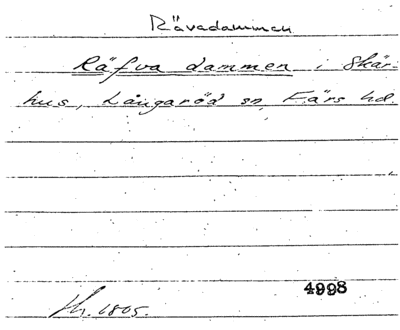 Rävadammen
Räfva dammen i Skär-
hus, Långaröd sn, Färs hd.
4998
1805.